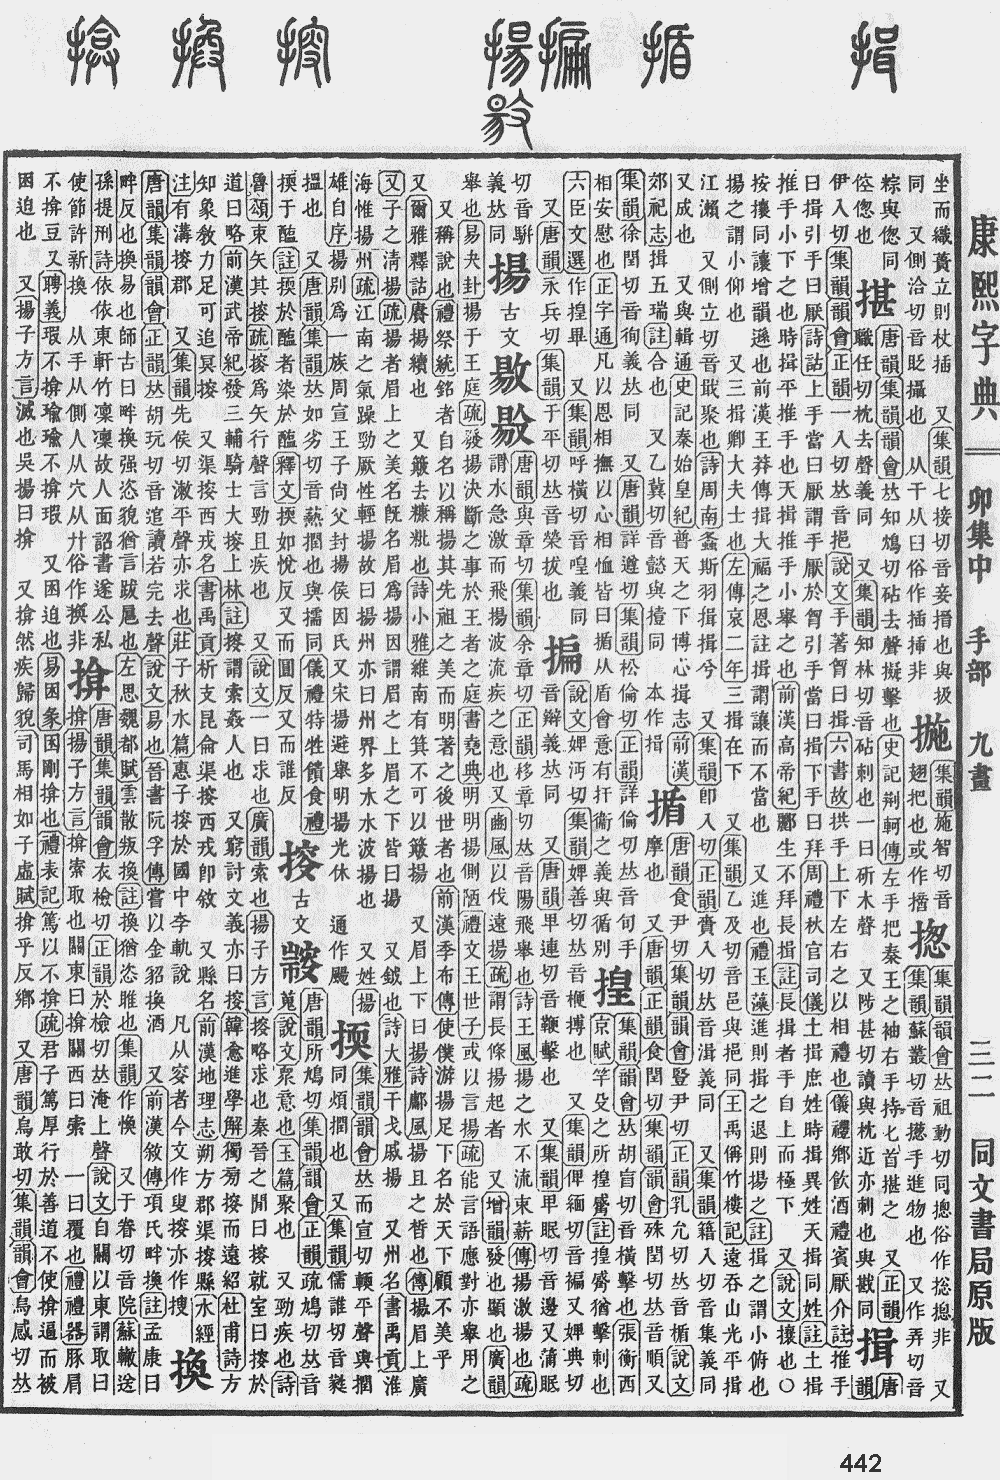 康熙字典 卯集中 手部 九畫 三二 同文書局原版
坐而織蕢立則杖插 又集韻七接切音妾搢也與扱 揓 集韻施智切音 揔 集韻韻會𠀤祖動切同摠俗作捴揌非 又
同 又側洽切音眨攝也 从干从臼俗作插揷非 翅把也或作揸 集韻蘇叢切音㩳手進物也 又作弄切音
粽與傯同 揕 唐韻集韻韻會𠀤知鴆切砧去聲擬擊也史記荆軻傳左手把秦王之袖右手持匕首揕之 又正韻 揖 唐
倥傯也 職任切枕去聲義同 又集韻知林切音砧刺也一曰斫木聲 又陟甚切讀與枕近亦刺也與戡同 韻
伊入切集韻韻會正韻一入切𠀤音挹說文手著胷曰揖六書故拱手上下左右之以相禮也儀禮鄉飲酒禮賓厭介註推手
曰揖引手曰厭詩詁上手當曰厭謂手厭於胷引手當曰揖下手曰拜周禮秋官司儀土揖庶姓時揖異姓天揖同姓註土揖
推手小下之也時揖平推手也天揖推手小舉之也前漢高帝紀酈生不拜長揖註長揖者手自上而極下 又說文攘也〇
按攘同讓增韻遜也前漢王莽傳揖大福之恩註揖謂讓而不當也 又進也禮玉藻進則揖之退則揚之註揖之謂小俯也
揚之謂小仰也 又三揖卿大夫士也左傳哀二年三揖在下 又集韻乙及切音邑與挹同王禹偁竹樓記遠吞山光平揖
江瀨 又側立切音戢聚也詩周南螽斯羽揖揖兮 又集韻卽入切正韻賫入切𠀤音湒義同 又集韻籍入切音集義同
又成也 又與輯通史記秦始皇紀普天之下博心揖志前漢 揗 唐韻食尹切集韻韻會豎尹切正韻孔允切𠀤音楯說文
郊祀志揖五瑞註合也 又乙冀切音懿與㩘同 本作揖 摩也 又唐韻正韻食閏切集韻韻會殊閏切𠀤音順又
集韻徐閏切音徇義𠀤同 又唐韻詳遵切集韻松倫切正韻詳倫切𠀤音旬手 揘 集韻韻會𠀤胡盲切音橫擊也張衡西
相安慰也正字通凡以恩相撫以心相恤皆曰揗从盾會意有扞衞之義與循別 京賦竿殳之所揘觱註揘觱猶擊刺也
六臣文選作揘畢 又集韻呼橫切音喤義同 揙 說文婢沔切集韻婢善切𠀤音楩搏也 又集韻俾緬切音褊又婢典切
又唐韻永兵切集韻于平切𠀤音榮拔也 音辮義𠀤同 又唐韻𤰞連切音鞭擊也 又集韻𤰞眠切音邊又蒲眠
切音騈 揚 古文敭 唐韻與章切集韻余章切正韻移章切𠀤音陽飛舉也詩王風揚之水不流束薪傳揚激揚也疏
義𠀤同 謂水急激而飛揚波流疾之意也又豳風以伐遠揚疏謂長條揚起者 又增韻發也顯也廣韻
舉也易夬卦揚于王庭疏發揚決斷之事於王者之庭書堯典明明揚側陋禮文王世子或以言揚疏能言語應對亦舉用之
又稱說也禮祭統銘者自名以稱揚其先祖之美而明著之後世者也前漢季布傳使僕游揚足下名於天下顧不美乎
又爾雅釋詁賡揚續也 又簸去糠粃也詩小雅維南有箕不可以簸揚 又眉上下曰揚詩鄘風揚且之晳也傳揚眉上廣
又子之淸揚疏揚者眉上之美名旣名眉爲揚因謂眉之上眉之下皆曰揚 又鉞也詩大雅干戈戚揚 又州名書禹貢淮
海惟揚州疏江南之氣躁勁厥性輕揚故曰揚州亦曰州界多水水波揚也 又姓揚 㨎 集韻韻會𠀤而宣切輭平聲與撋
雄自序揚別爲一族周宣王子尚父封揚侯因氏又宋揚避舉明揚光休 通作颺 同煩撋也 又集韻儒誰切音蕤
搵也 又唐韻集韻𠀤如劣切音爇撋也與擩同儀禮特牲饋食禮 古 唐韻所鳩切集韻韻會正韻疏鳩切𠀤音
㨎于醢註㨎於醢者染於醢釋文㨎如悅反又而圜反又而誰反 文 蒐說文衆意也玉篇聚也 又勁疾也詩
魯頌束矢其搜疏搜爲矢行聲言勁且疾也 又說文一曰求也廣韻索也揚子方言搜略求也秦晉之閒曰搜就室曰搜於
道曰略前漢武帝紀發三輔騎士大搜上林註搜謂索姦人也 又窮討文義亦曰搜韓愈進學解獨旁搜而遠紹杜甫詩方
知象敎力足可追冥搜 又渠搜西戎名書禹貢析支昆侖渠搜西戎卽敘 又縣名前漢地理志朔方郡渠搜縣水經
注有溝搜郡 又集韻先侯切漱平聲亦求也莊子秋水篇惠子搜於國中李軌說 凡从叜者今文作叟搜亦作捜 換
唐韻集韻韻會正韻𠀤胡玩切音逭讀若完去聲說文易也晉書阮孚傳嘗以金貂換酒 又前漢敘傳項氏畔換註孟康曰
畔反也換易也師古曰畔換强恣貌猶言跋扈也左思魏都賦雲散叛換註換猶恣睢也集韻作愌 又于眷切音院蘇轍送
孫提刑詩依依東軒竹凜凜故人面詔書遂公私 揜 唐韻集韻韻會衣檢切正韻於檢切𠀤淹上聲說文自關以東謂取曰
使節許新換 从手从側人从穴从廾俗作㨪非 揜揚子方言揜索取也關東曰揜關西曰索 一曰覆也禮禮器豚肩
不揜豆又聘義瑕不揜瑜瑜不揜瑕 又困迫也易困彖困剛揜也禮表記篤以不揜疏君子篤厚行於善道不使揜逼而被
困迫也 又揚子方言滅也吳揚曰揜 又揜然疾歸貌司馬相如子虛賦揜乎反鄉 又唐韻烏敢切集韻韻會烏感切𠀤
442